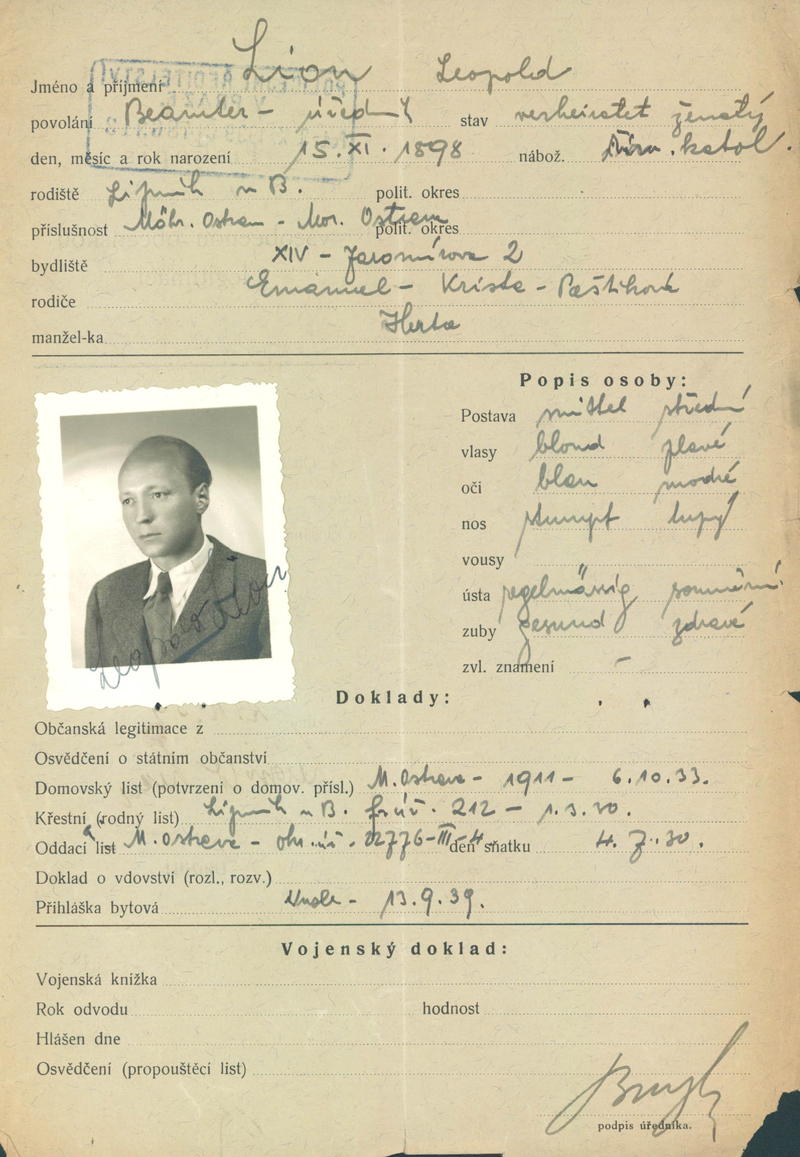 Jméno a příjmení Lion Leopold
povolání Beamter - úředník stav verheiratet ženatý
den, měsíc a rok narození 15. XI. 1898 nábož. řím. katol.
rodiště Lipník n B. polit. okres
příslušnost Mähr. Ostrau - Mor. Ostrava polit. okres
bydliště XIV - Jaromírova 2
rodiče Emanuel - Krista - Paštiková
manžel-ka Herta
Popis osoby:
Postava mittel střední
vlasy blond plavé
oči blau modré
nos stumpf tupý
vousy
ústa regelmässig souměrná
zuby gesund zdravé
zvl. znamení –
Leopold Lion
Doklady:
Občanská legitimace z
Osvědčení o státním občanství
Domovský list (potvrzení o domov. přísl.) M. Ostrava - 1911 - 6.10.33.
Křestní (rodný list) Lipník n B. 212 - 1.3.20.
Oddací list M. Ostrava - okr. úř. 22776-III-4. den sňatku 4. 7. 30.
Doklad o vdovství (rozl., rozv.)
Přihláška bytová Nusle - 13.9.39.
Vojenský doklad:
Vojenská knížka
Rok odvodu hodnost
Hlášen dne
Osvědčení (propouštěcí list)
podpis úředníka.